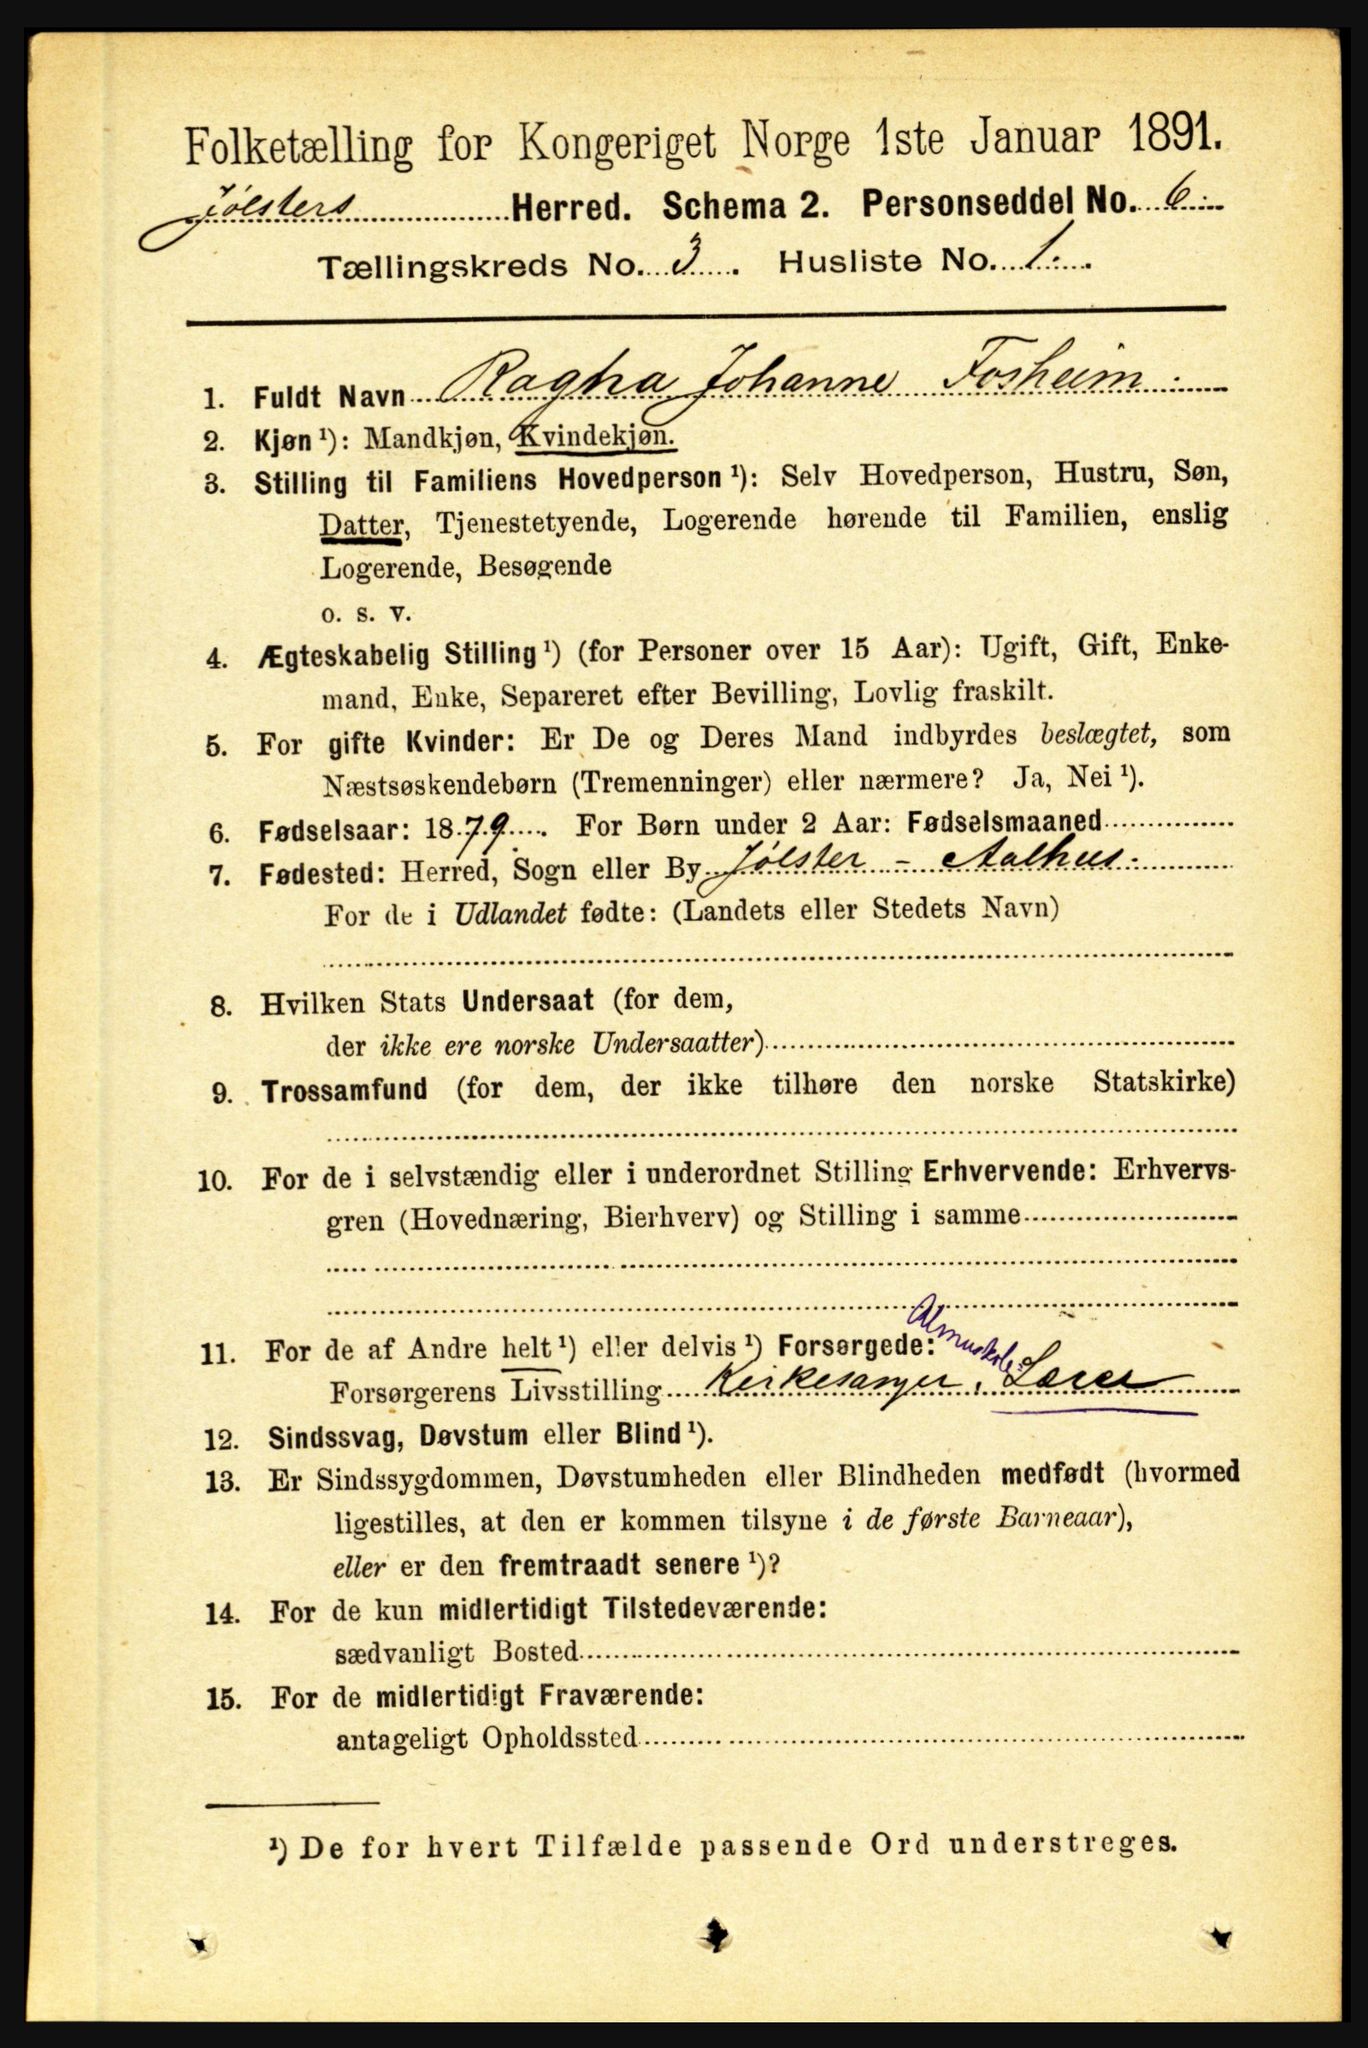 Folketælling for Kongeriget Norge 1ste Januar 1891.
Jölsters Herred. Schema 2. Personseddel No. 6.
Tællingskreds No. 3. Husliste No. 1.
1. Fuldt Navn Ragna Johanne Fosheim.
2. Kjøn ¹): Mandkjøn, Kvindekjøn.
3. Stilling til Familiens Hovedperson ¹): Selv Hovedperson, Hustru, Søn,
Datter, Tjenestetyende, Logerende hørende til Familien, enslig
Logerende, Besøgende
o. s. v.
4. Ægteskabelig Stilling ¹) (for Personer over 15 Aar): Ugift, Gift, Enke-
mand, Enke, Separeret efter Bevilling, Lovlig fraskilt.
5. For gifte Kvinder: Er De og Deres Mand indbyrdes beslægtet, som
Næstsøskendebørn (Tremenninger) eller nærmere? Ja, Nei ¹).
6. Fødselsaar: 1879. For Børn under 2 Aar: Fødselsmaaned
7. Fødested: Herred, Sogn eller By Jölster - Aalhus.
For de i Udlandet fødte: (Landets eller Stedets Navn)
8. Hvilken Stats Undersaat (for dem,
der ikke ere norske Undersaatter)
9. Trossamfund (for dem, der ikke tilhøre den norske Statskirke)
10. For de i selvstændig eller i underordnet Stilling Erhvervende: Erhvervs-
gren (Hovednæring, Bierhverv) og Stilling i samme
11. For de af Andre helt ¹) eller delvis ¹) Forsørgede: Almuskole
Forsørgerens Livsstilling Kirkesanger, Lærer
12. Sindssvag, Døvstum eller Blind ¹).
13. Er Sindssygdommen, Døvstumheden eller Blindheden medfødt (hvormed
ligestilles, at den er kommen tilsyne i de første Barneaar),
eller er den fremtraadt senere ¹)?
14. For de kun midlertidigt Tilstedeværende:
sædvanligt Bosted
15. For de midlertidigt Fraværende:
antageligt Opholdssted
¹) De for hvert Tilfælde passende Ord understreges.